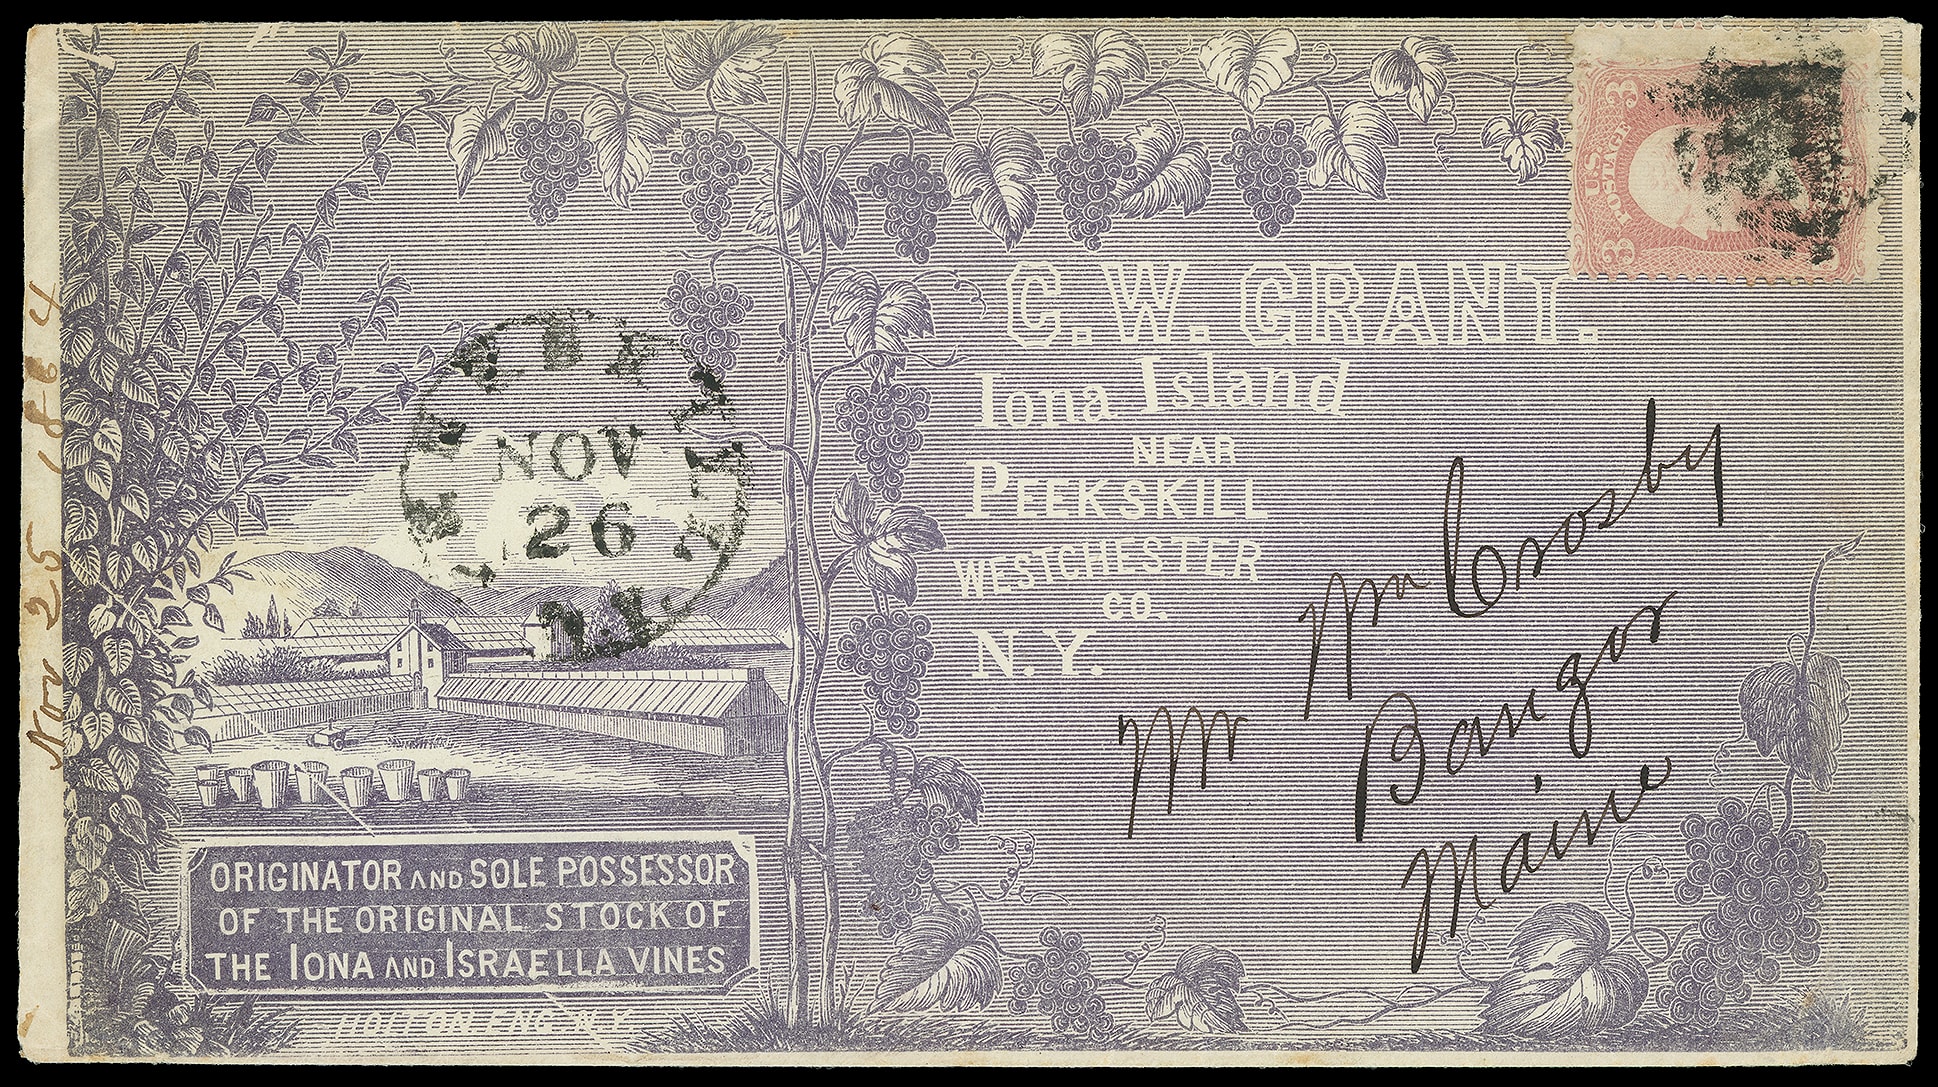 Nov 25 1864
U.S. POSTAGE
3 3
C. W. GRANT.
Iona Island
NEAR
PEEKSKILL
WESTCHESTER
CO.
N.Y.
NOV
26
Mr Wm Crosby
Bangor
Maine
ORIGINATOR AND SOLE POSSESSOR
OF THE ORIGINAL STOCK OF
THE IONA AND ISRAELLA VINES